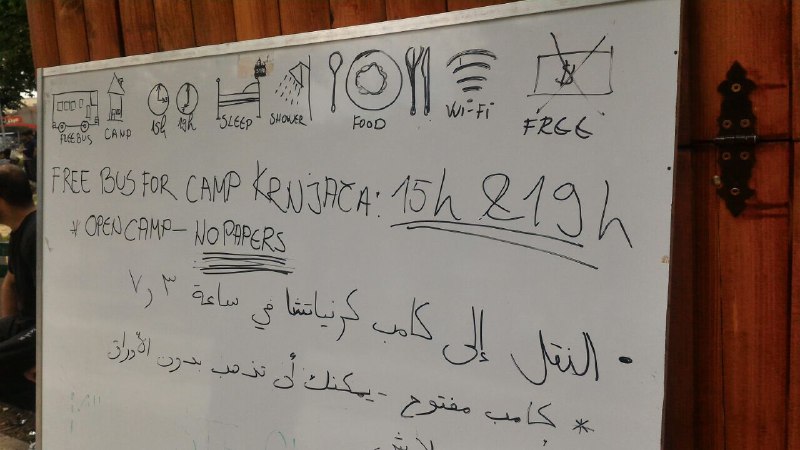 FREE BUS CAMP 15h 19h SLEEP SHOWER FOOD Wi-Fi FREE
FREE BUS FOR CAMP KRNJAČA: 15h & 19h
* OPEN CAMP - NO PAPERS
• النقل إلى كامب كرنياتشا في ساعة ٣ و ٧
* كامب مفتوح - يمكنك أن تذهب بدون الأوراق